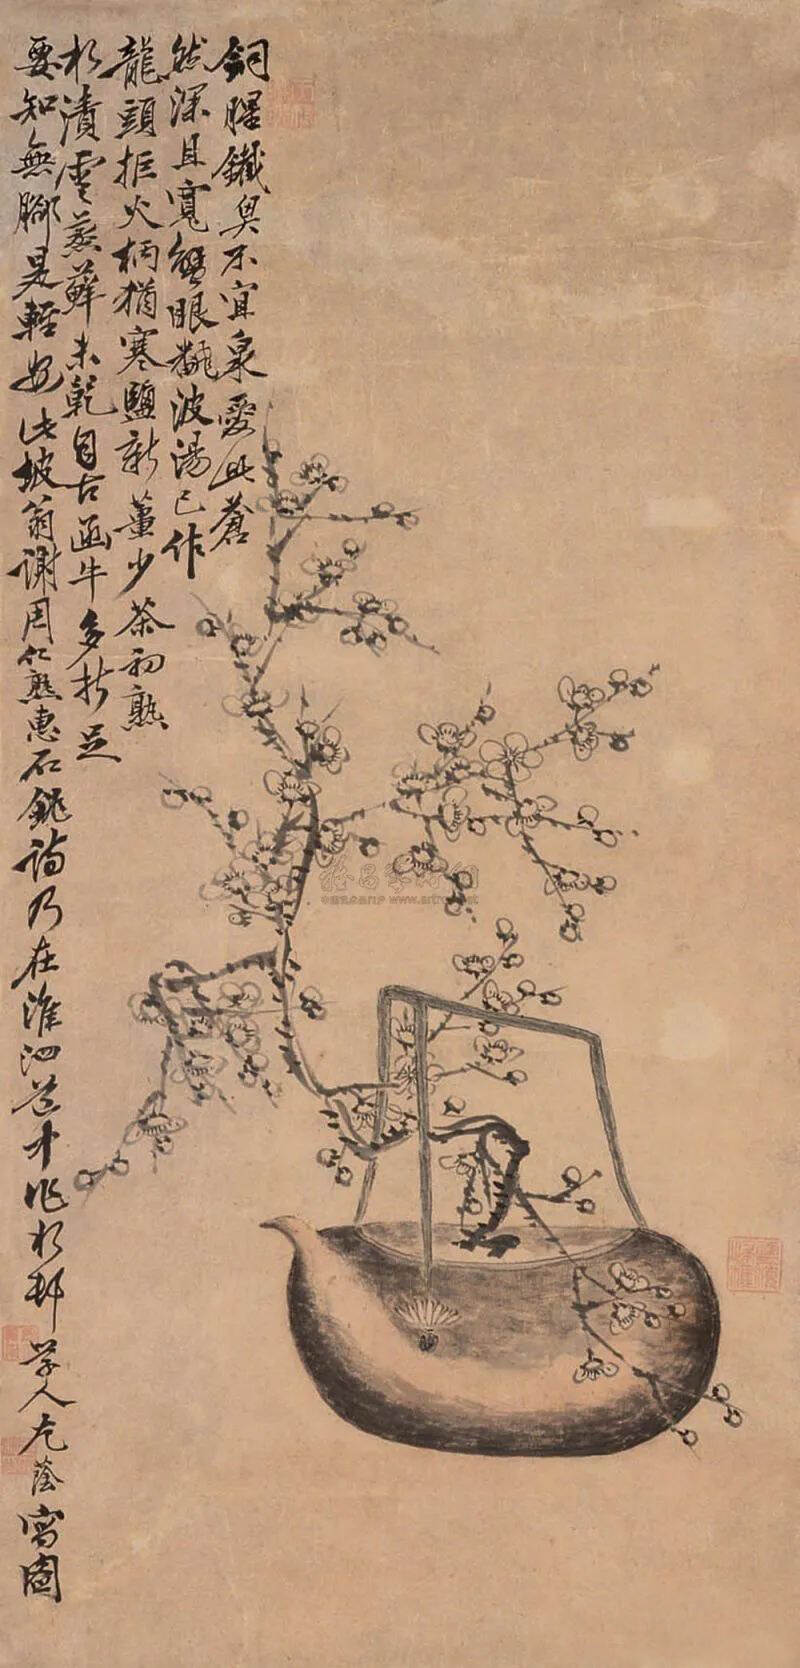 銅腥鐵臭不宜泉愛此蒼
然深且寬蟹眼翻波湯已作
龍頭拒火柄猶寒鹽新薑少茶初熟
水漬雲蒸蘚未乾自古函牛多折足
要知無腳是輕安此坡翁謝周仁熟惠石銚詩乃在淮泗道中作水邨學人尤蔭寫圖
www.artron.net